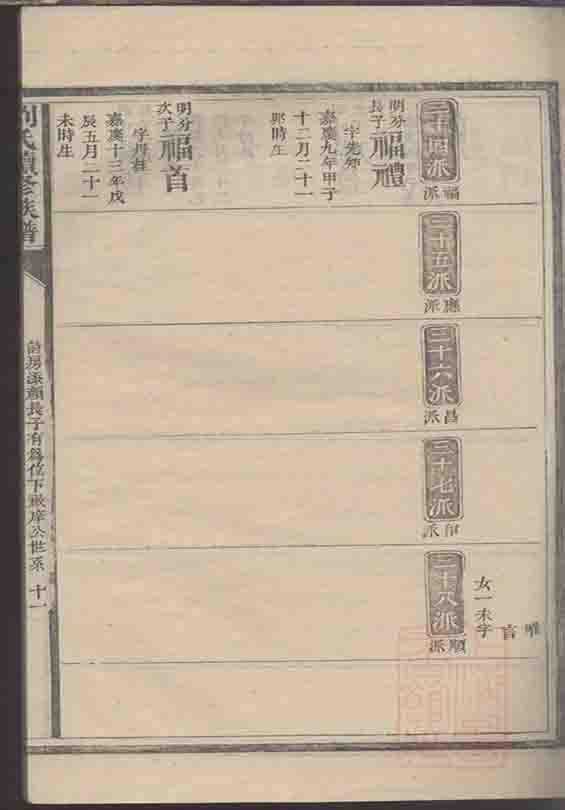 女一未字
三十四派
福派
三十五派
應派
三十六派
昌派
三十七派
印派
三十八派
順派
明分長子福禮
字先
嘉慶九年甲子
十二月二十一
卯時生
明分次子福首
字丹桂
嘉慶十三年戊
辰五月二十一
未時生
劉氏續修族譜
房添 長子有爲位下 公世系 十一